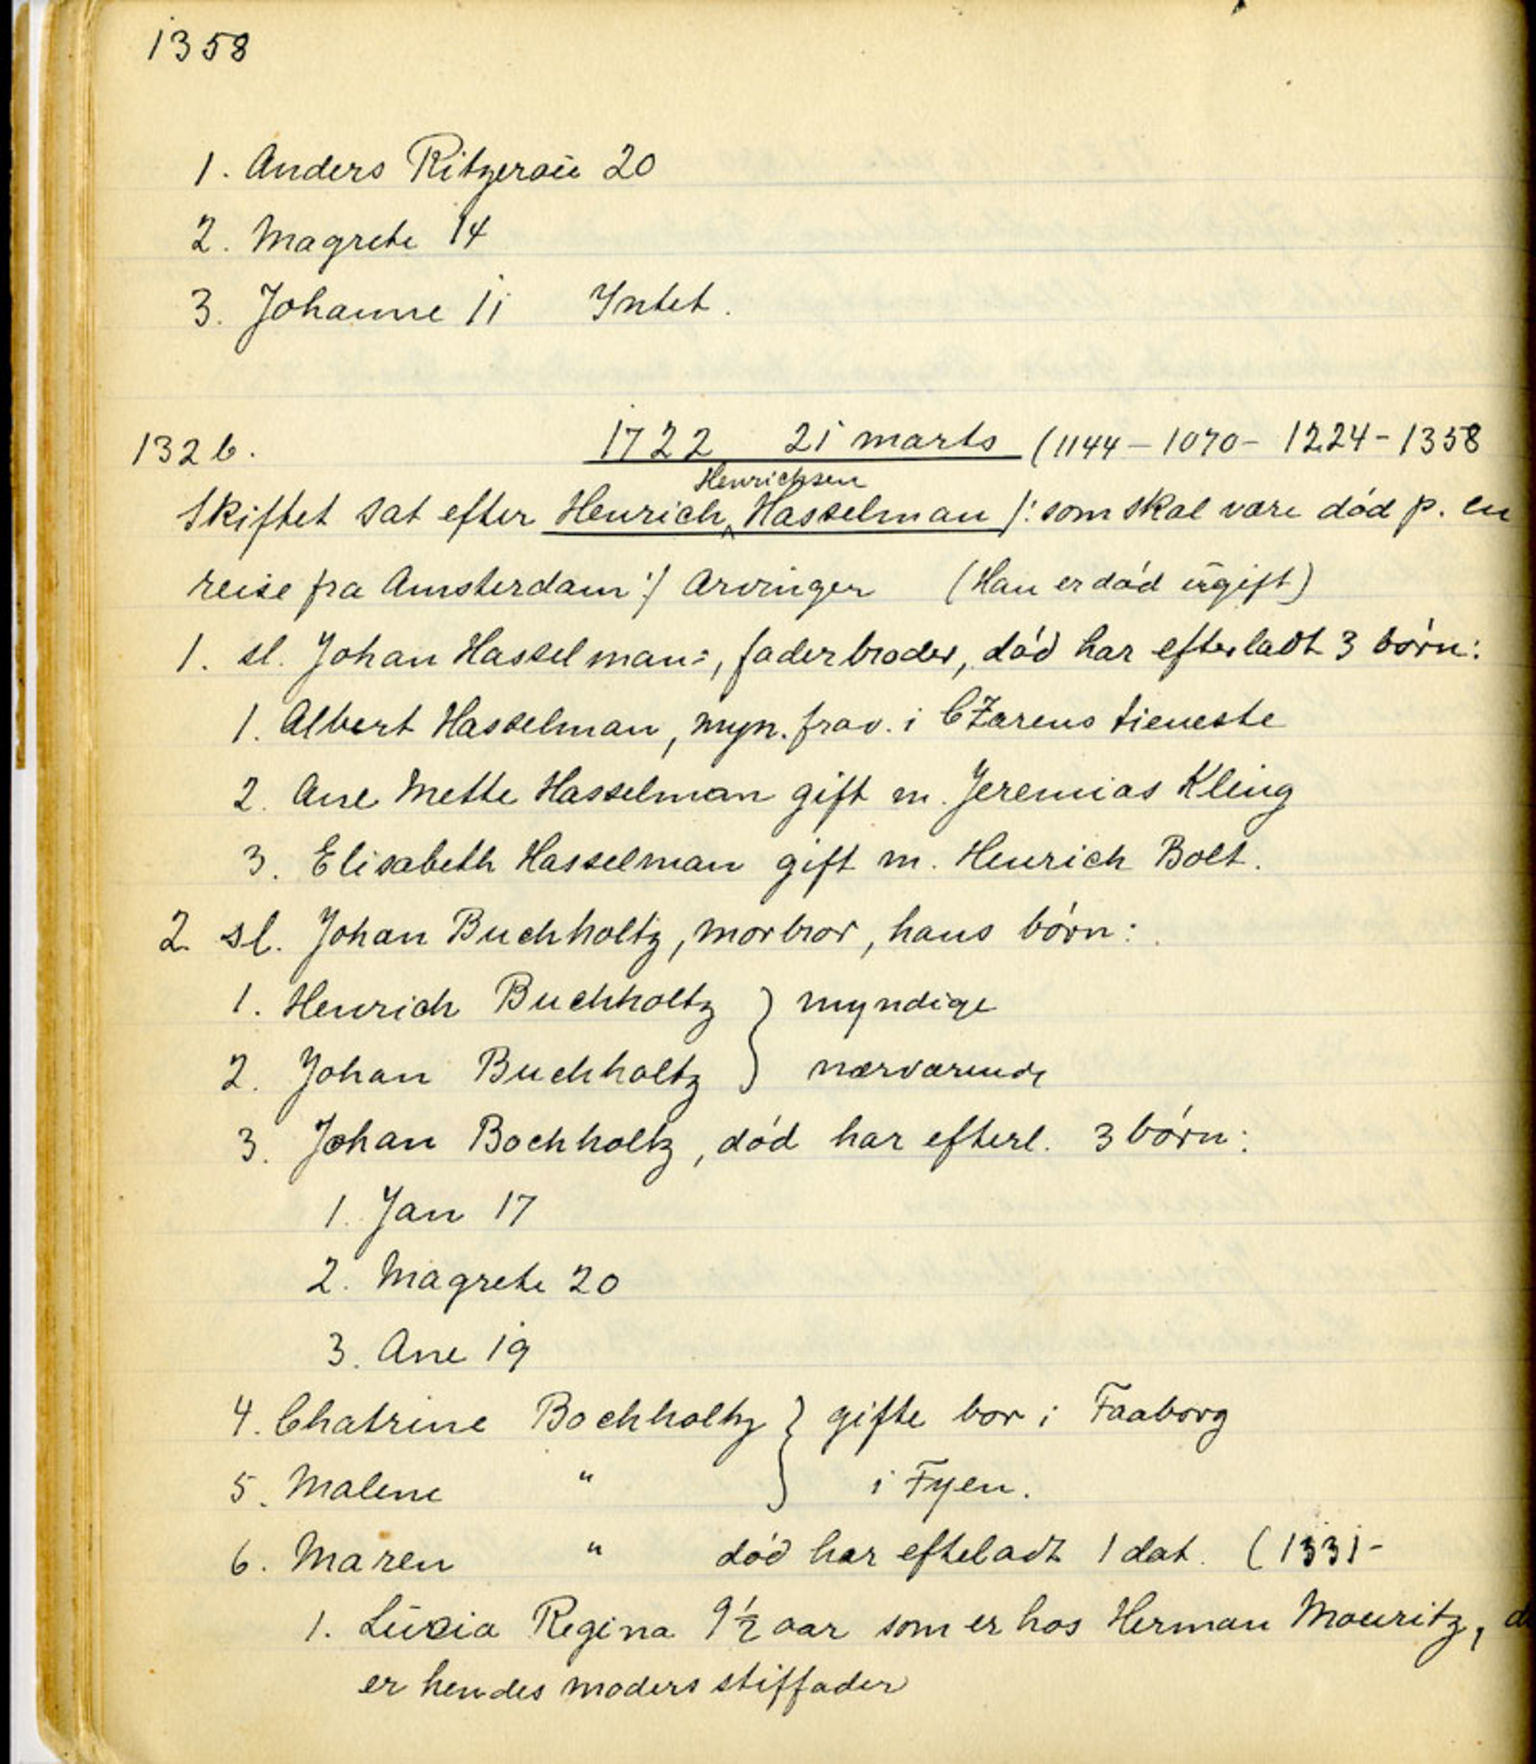 1358
1. Anders Ritzeraŭ 20
2. Magrete 14
3. Johanne 11 Intet.
132 b. 1722 21 marts (1144 - 1070 - 1224 - 1358
Henrichsen
Skiftet sat efter Henrich ^ Hasselman /: som skal være død p. en
reise fra Amsterdam :/ Arvinger (Han er død ŭgift)
1. sl. Johan Hasselman:, faderbroder, død har efterladt 3 børn:
1. Albert Hasselman, myn. frav. i CZarens tieneste
2. Ane Mette Hasselman gift m. Jeremias Kling
3. Elisabeth Hasselman gift m. Henrich Bolt.
2 sl. Johan Buchholtz, morbror, hans børn:
1. Henrich Buchholtz } myndige
2. Johan Buchholtz } nærværende
3. Johan Bochholtz, død har efterl. 3 børn:
1. Jan 17
2. Magrete 20
3. Ane 19
4. Chatrine Bochholtz } gifte bor i Faaborg
5. Malene " } i Fyen.
6. Maren " død har efteladt 1 dat. (1331-
1. Lŭcia Regina 9½ aar som er hos Herman Mouritz,
er hendes moders stiffader